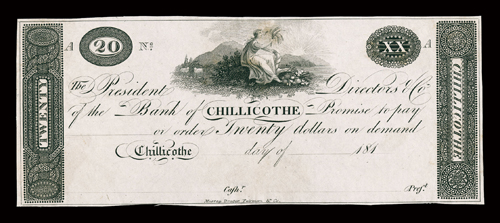 A 20 Nº XX A
The President Directors & Co.
of the Bank of CHILLICOTHE Promise to pay
or order Twenty dollars on demand
Chillicothe day of 181
Cashr. Presr.
Murray Draper Fairman & Co.
TWENTY
CHILLICOTHE